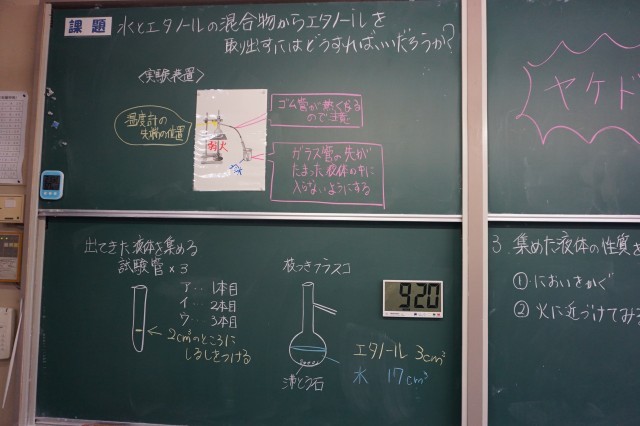 課題 水とエタノールの混合物からエタノールを
取り出すにはどうすればいいだろうか?
〈実験装置〉
温度計の
先端の位置
弱火
ゴム管が熱くなる
ので注意
ガラス管の先が
たまった液体の中に
入らないようにする
ヤケド
出てきた液体を集める
試験管×3
ア…1本目
イ…2本目
ウ…3本目
2cm³のところに
しるしをつける
枝つきフラスコ
沸とう石
920
エタノール 3cm³
水 17cm³
3. 集めた液体の性質を
①においをかぐ
②火に近づけてみる